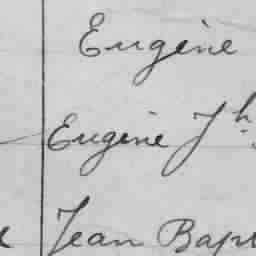 Eugène
Eugène Jh.
Jean Bapt